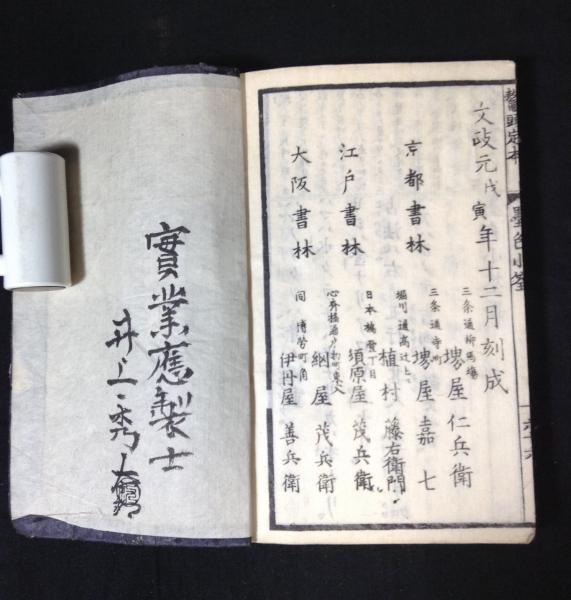 鼇頭定本
墨色小筌
文政元戊寅年十二月刻成
京都書林
三条通柳馬場
堺屋仁兵衛
三条通寺町
堺屋嘉七
堀川通高辻上
植村藤右衛門
江戸書林
日本橋壹丁目
須原屋茂兵衛
大阪書林
心斎橋通
綱屋茂兵衛
同博労町角
伊丹屋善兵衛
實業應製士
井上秀